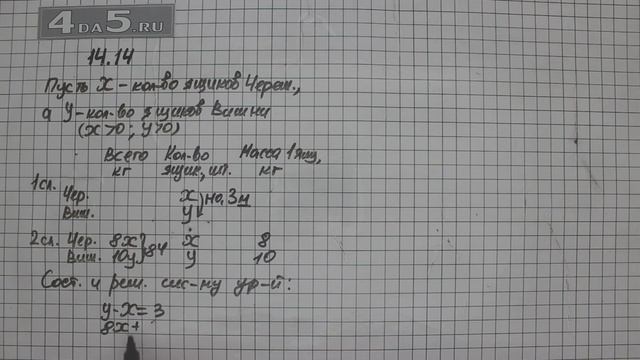 4DA5.RU
14.14
Пусть X - кол-во ящиков Череш.,
а У - кол-во ящиков Вишни
(X>0; У>0)
Всего Кол-во Масса 1 ящ,
кг ящик, шт. кг
1сл.
Чер. X
Виш. У на 3 м
2сл. Чер. 8X X 8
Виш. 10У 84 У 10
Сост. и реш. сис-му ур-й:
У-X=3
8X+